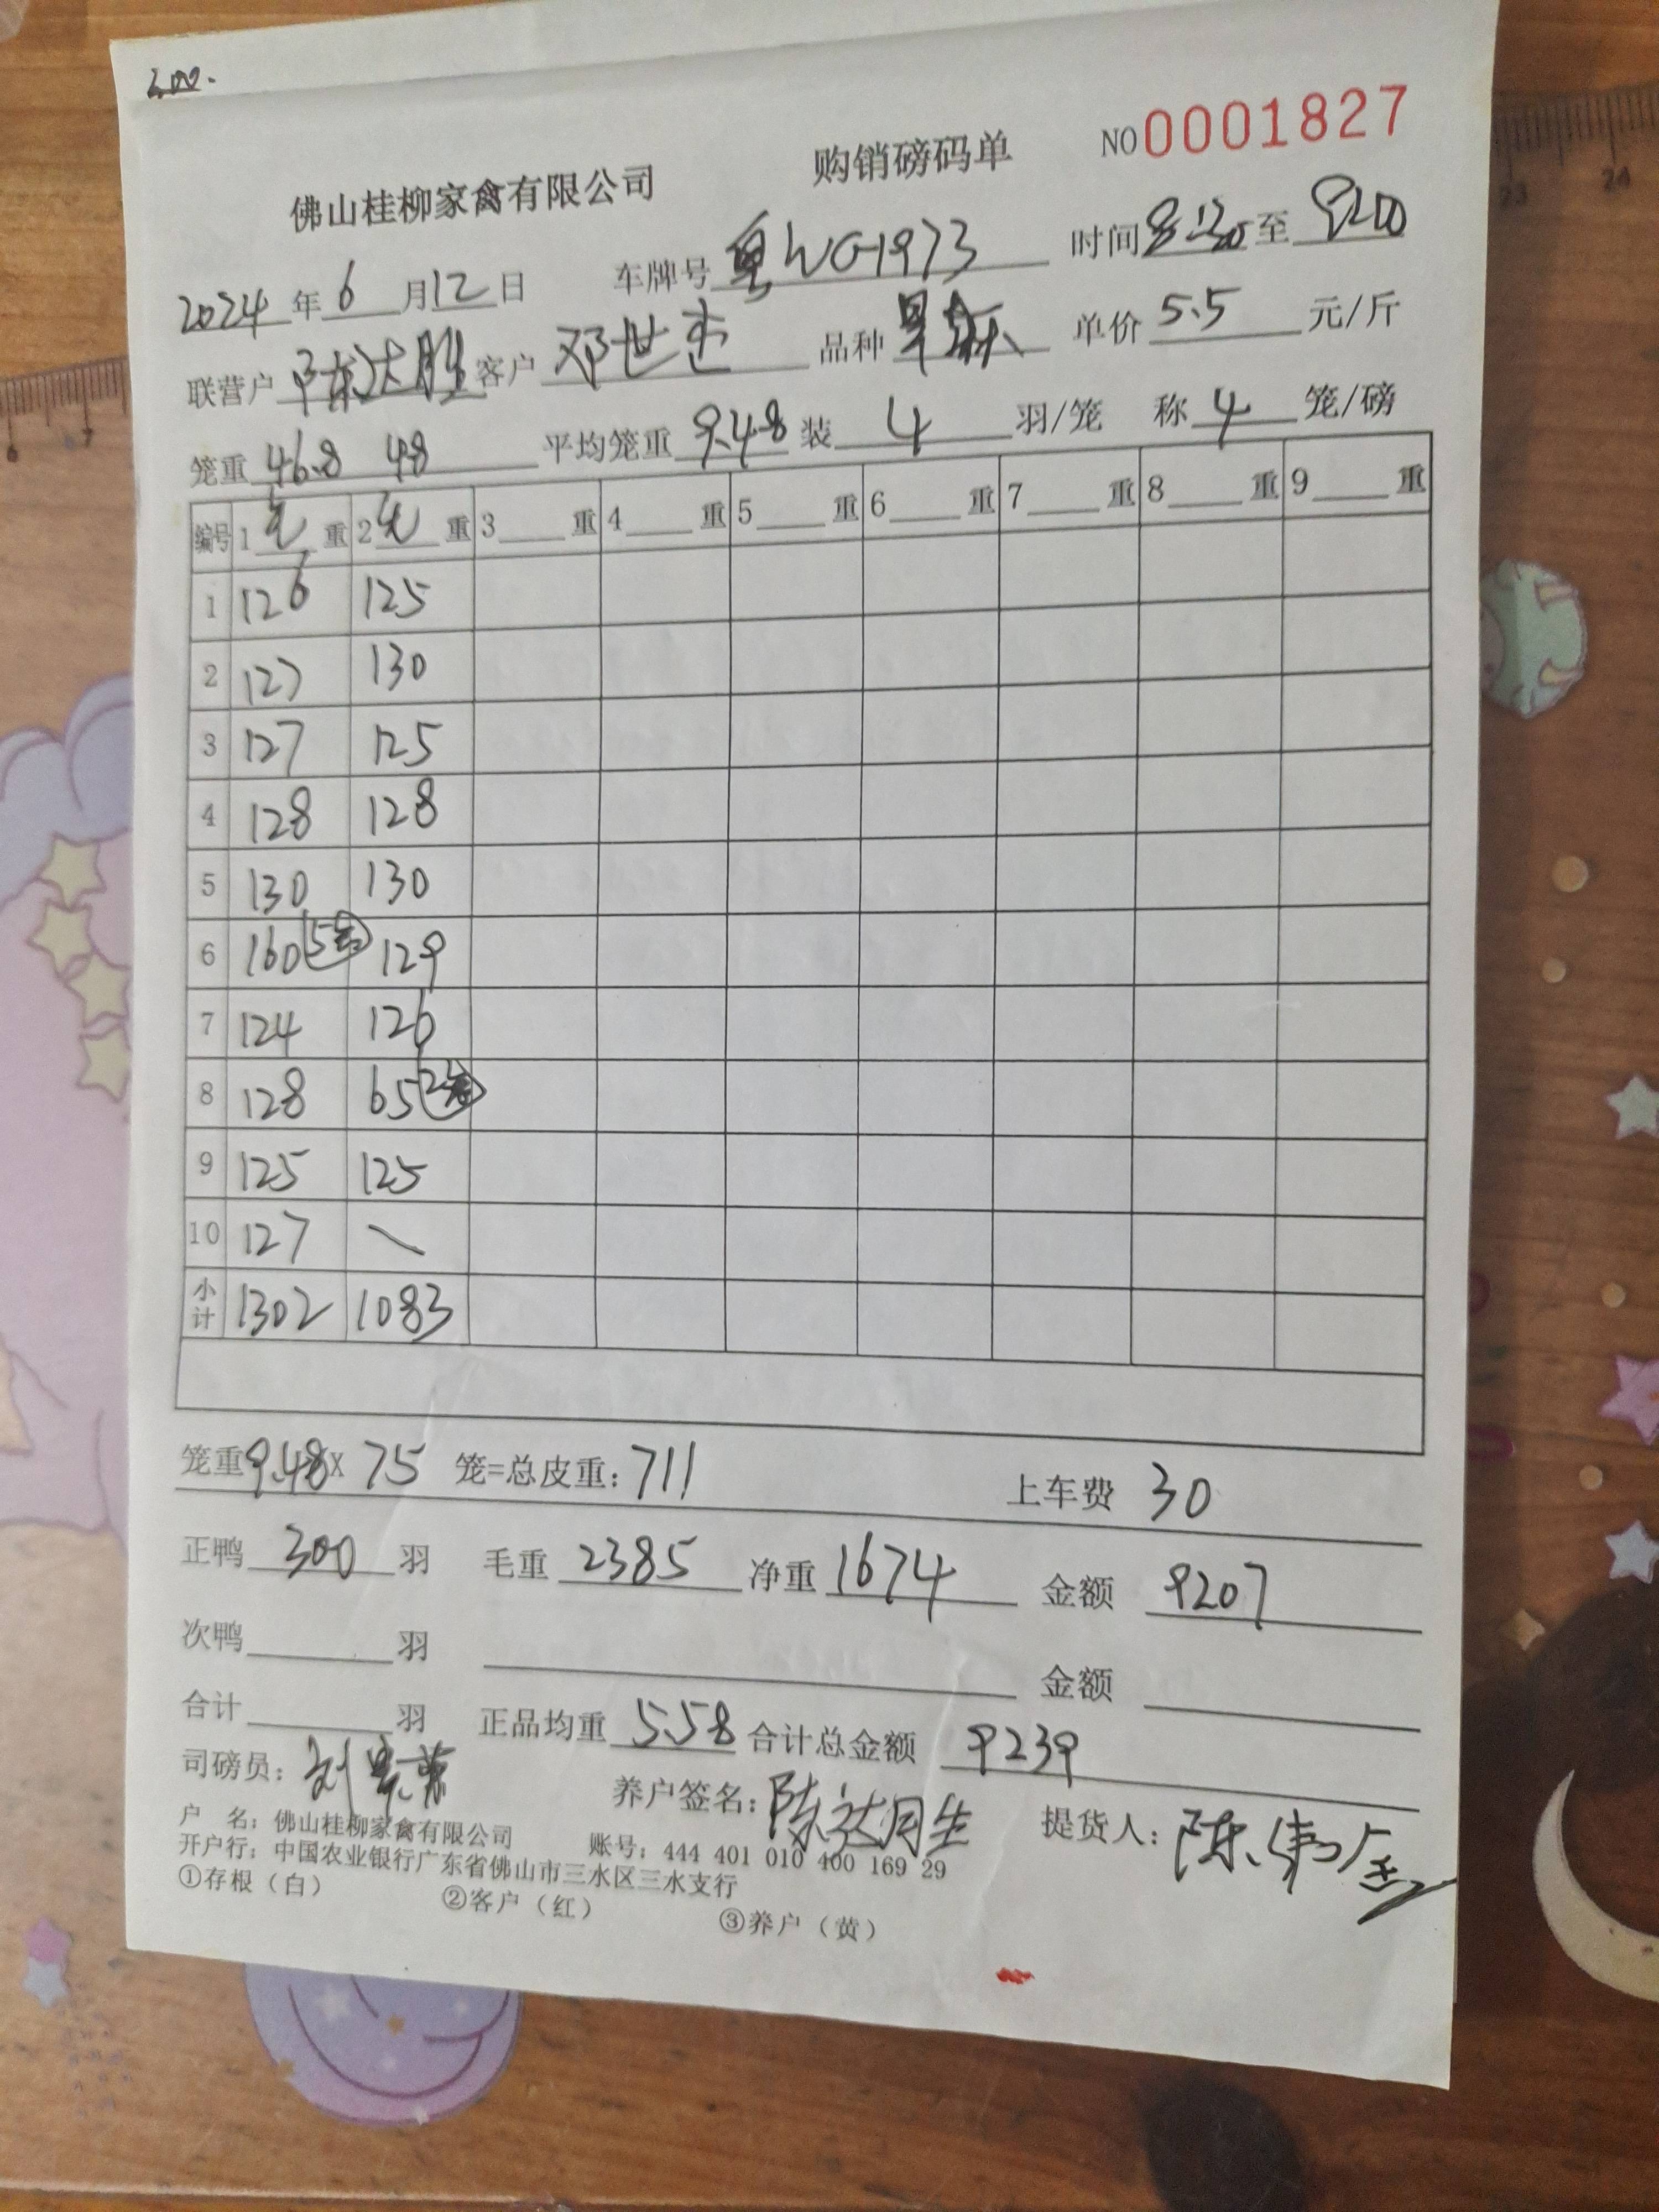 300.
佛山桂柳家禽有限公司 购销磅码单 NO 0001827
2024年6月12日 车牌号 粤WG1973 时间 8:30 至 9:00
联营户 陈达胜 客户 邓世杰 品种 单价 5.5 元/斤
笼重 46.8 48 平均笼重 9.48 装 4 羽/笼 称 4 笼/磅
编号 1 毛 重 2 毛 重 3 重 4 重 5 重 6 重 7 重 8 重 9 重
1 126 125
2 127 130
3 127 125
4 128 128
5 130 130
6 160 (5笼) 129
7 124 126
8 128 65 (2笼)
9 125 125
10 127 \
小计 1302 1083
笼重 9.48 X 75 笼=总皮重: 711 上车费 30
正鸭 300 羽 毛重 2385 净重 1674 金额 9207
次鸭 羽 金额
合计 羽 正品均重 5.58 合计总金额 9239
司磅员: 刘 养户签名: 陈达胜 提货人: 陈伟
户 名: 佛山桂柳家禽有限公司 账号: 444 401 010 400 169 29
开户行: 中国农业银行广东省佛山市三水区三水支行
①存根（白） ②客户（红） ③养户（黄）